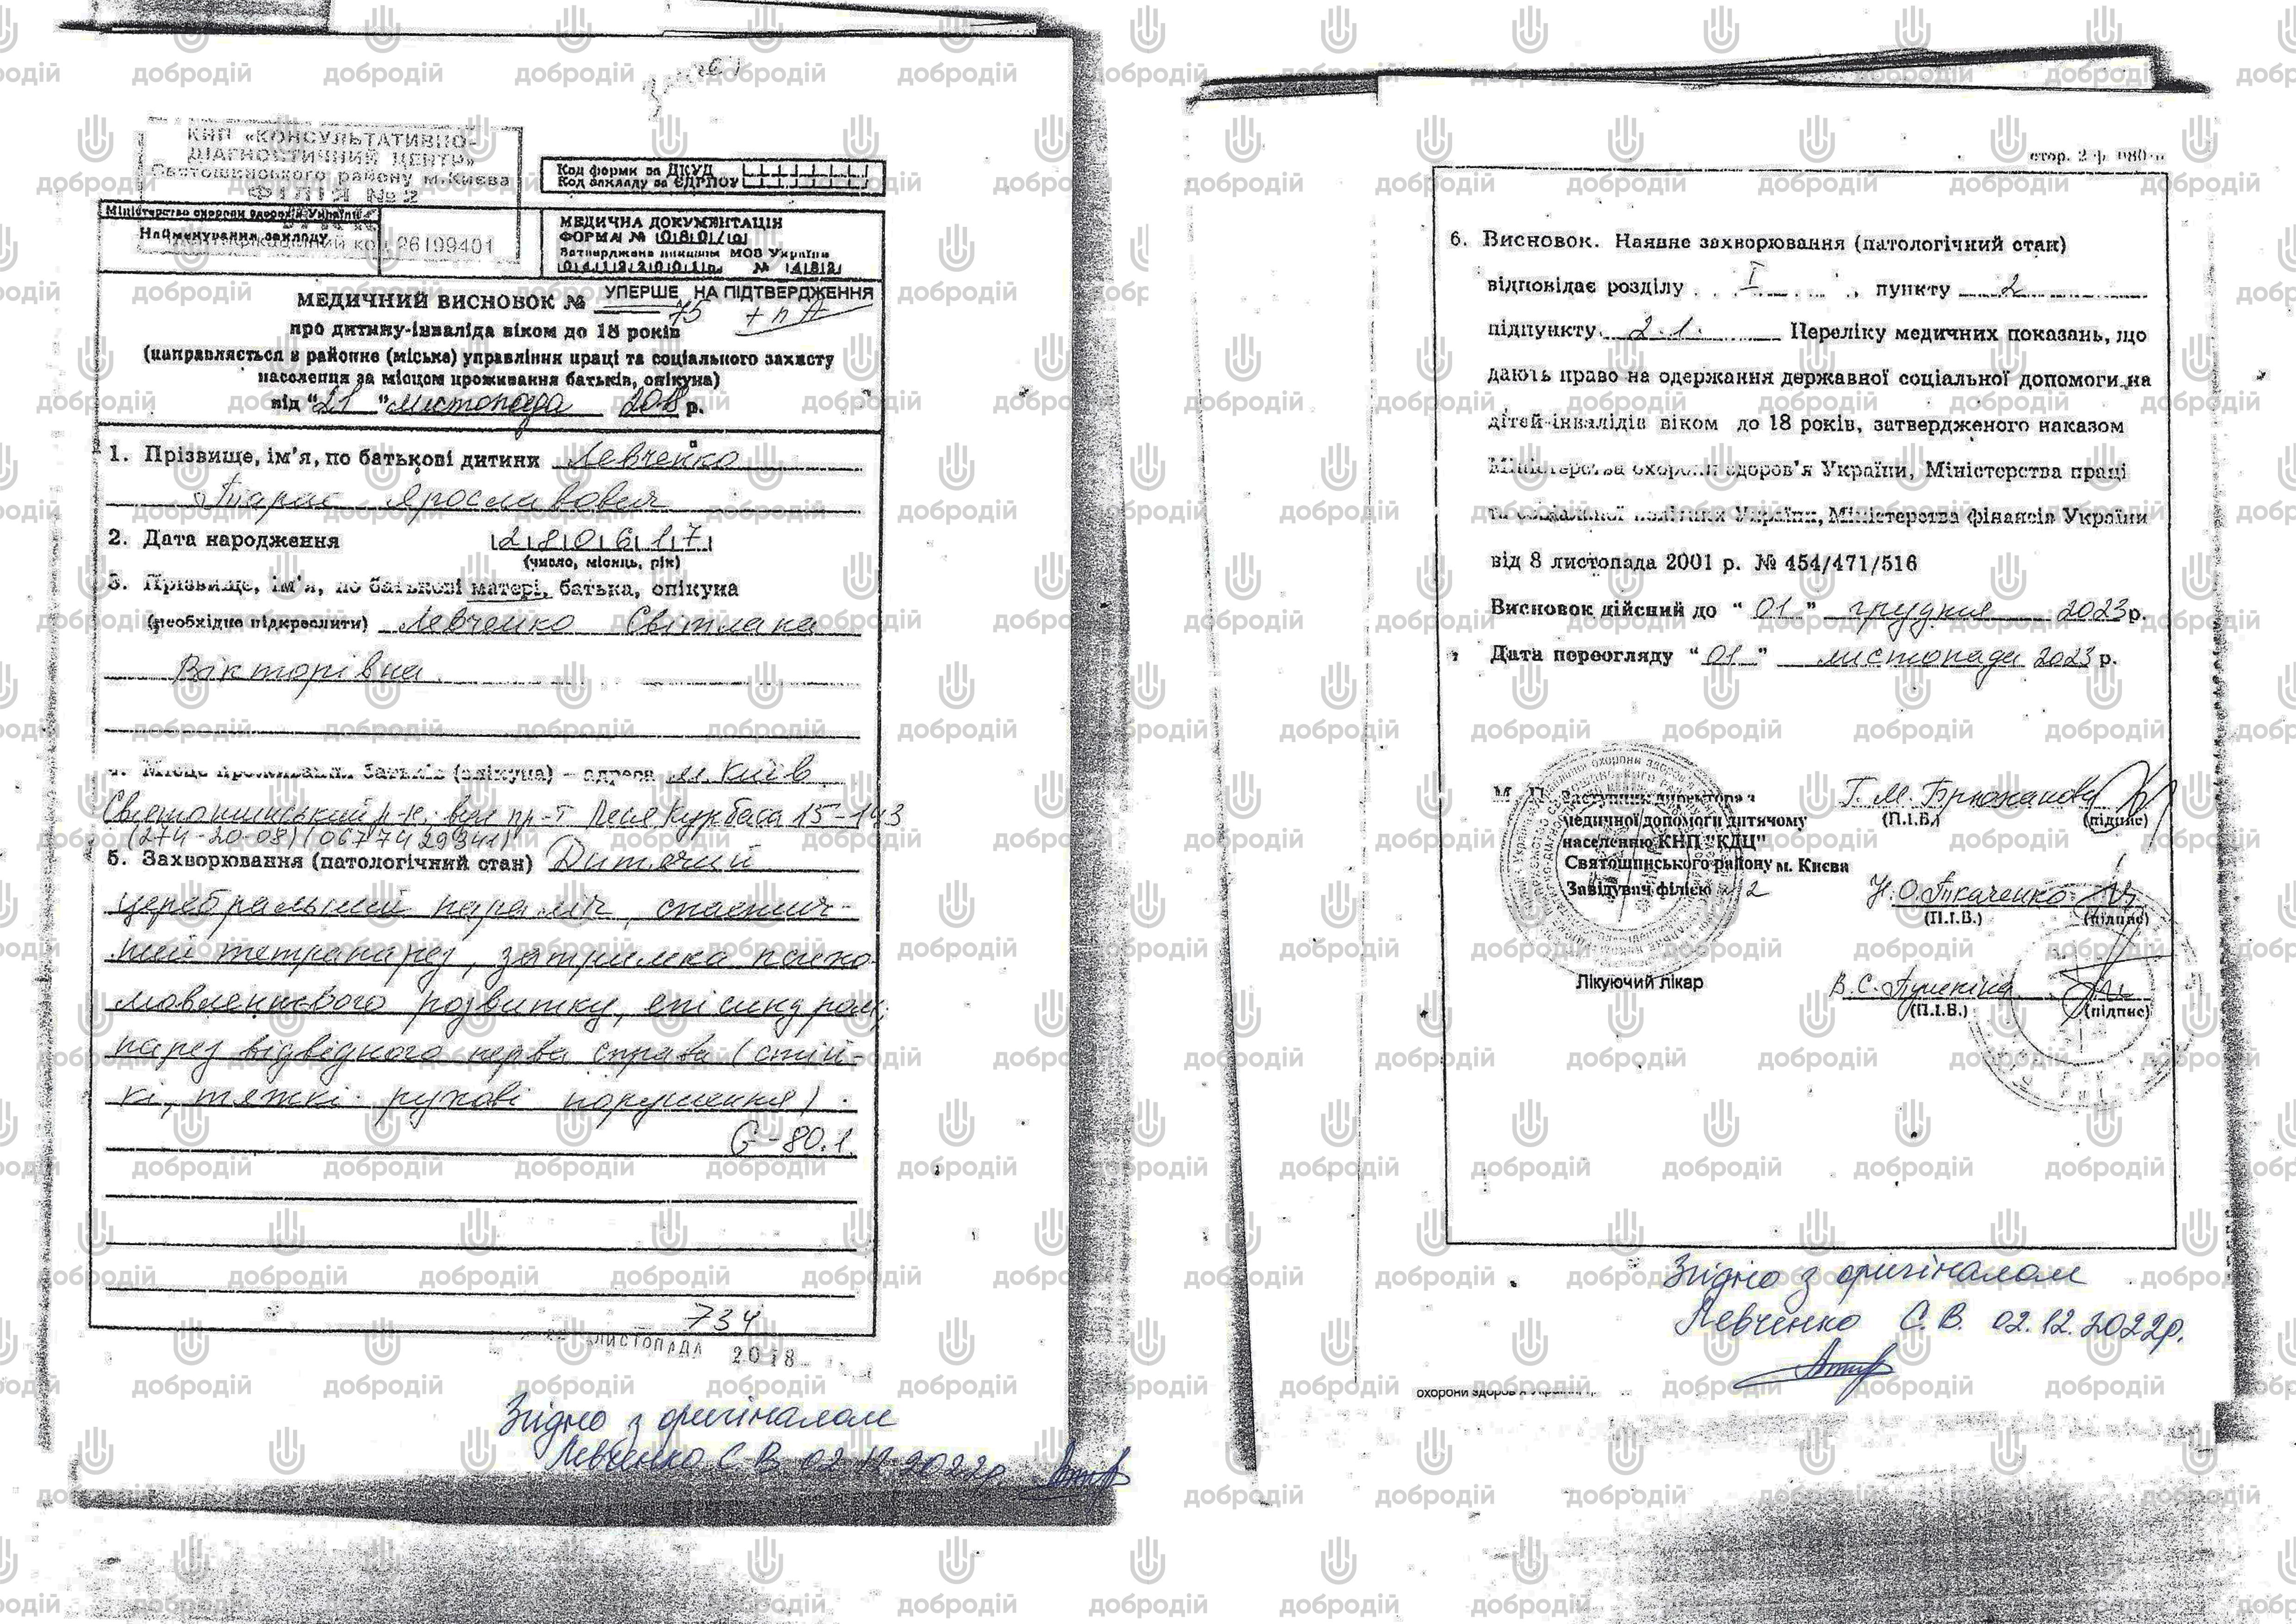 КНП «КОНСУЛЬТАТИВНО-
ДІАГНОСТИЧНИЙ ЦЕНТР»
Святошинського району м.Києва
ФІЛІЯ №2
код 26199401
Код форми за ДКУД
Код закладу за ЄДРПОУ
Міністерство охорони здоров'я України
Найменування закладу
МЕДИЧНА ДОКУМЕНТАЦІЯ
ФОРМА № 080/о
Затверджена наказом МОЗ України
04122001р. № 482
МЕДИЧНИЙ ВИСНОВОК № 75 УПЕРШЕ НА ПІДТВЕРДЖЕННЯ
про дитину-інваліда віком до 18 років
(направляється в районне (міське) управління праці та соціального захисту
населення за місцем проживання батьків, опікуна)
від "21" листопада 2018 р.
1. Прізвище, ім'я, по батькові дитини Левченко
Тарас Ярославович
2. Дата народження 280617
(число, місяць, рік)
3. Прізвище, ім'я, по батькові матері, батька, опікуна
(необхідне підкреслити) Левченко Світлана
Вікторівна
4. Місце проживання батьків (опікуна) – адреса м. Київ
Святошинський р-н, вул пр-т Леся Курбаса 15-143
(274-20-08) (0677429341)
5. Захворювання (патологічний стан) Дитячий
церебральний параліч, спастич-
ний тетрапарез, затримка психо-
мовленнєвого розвитку, епісиндром,
парез відвідного нерва справа (стій-
кі, тяжкі рухові порушення)
G-80.1.
734
ЛИСТОПАДА 2018
Згідно з оригіналом
Левченко С.В. 02.12.2022р.
стор. 2 ф. 080/о
6. Висновок. Наявне захворювання (патологічний стан)
відповідає розділу I, пункту 2
підпункту 2.1. Переліку медичних показань, що
дають право на одержання державної соціальної допомоги на
дітей-інвалідів віком до 18 років, затвердженого наказом
Міністерства охорони здоров'я України, Міністерства праці
та соціальної політики України, Міністерства фінансів України
від 8 листопада 2001 р. № 454/471/516
Висновок дійсний до "01" грудня 2023р.
Дата переогляду "01" листопада 2023 р.
М. П. Заступник директора з
медичної допомоги дитячому
населенню КНП "КДЦ"
Святошинського району м. Києва
Завідувач філією 2
Г. М. Брюханова
(П.І.Б.) (підпис)
Н.О. Ткаченко
(П.І.Б.) (підпис)
Лікуючий лікар
В.С.
(П.І.Б.) (підпис)
Згідно з оригіналом
Левченко С.В. 02.12.2022р.
охорони здоров'я України
добродій